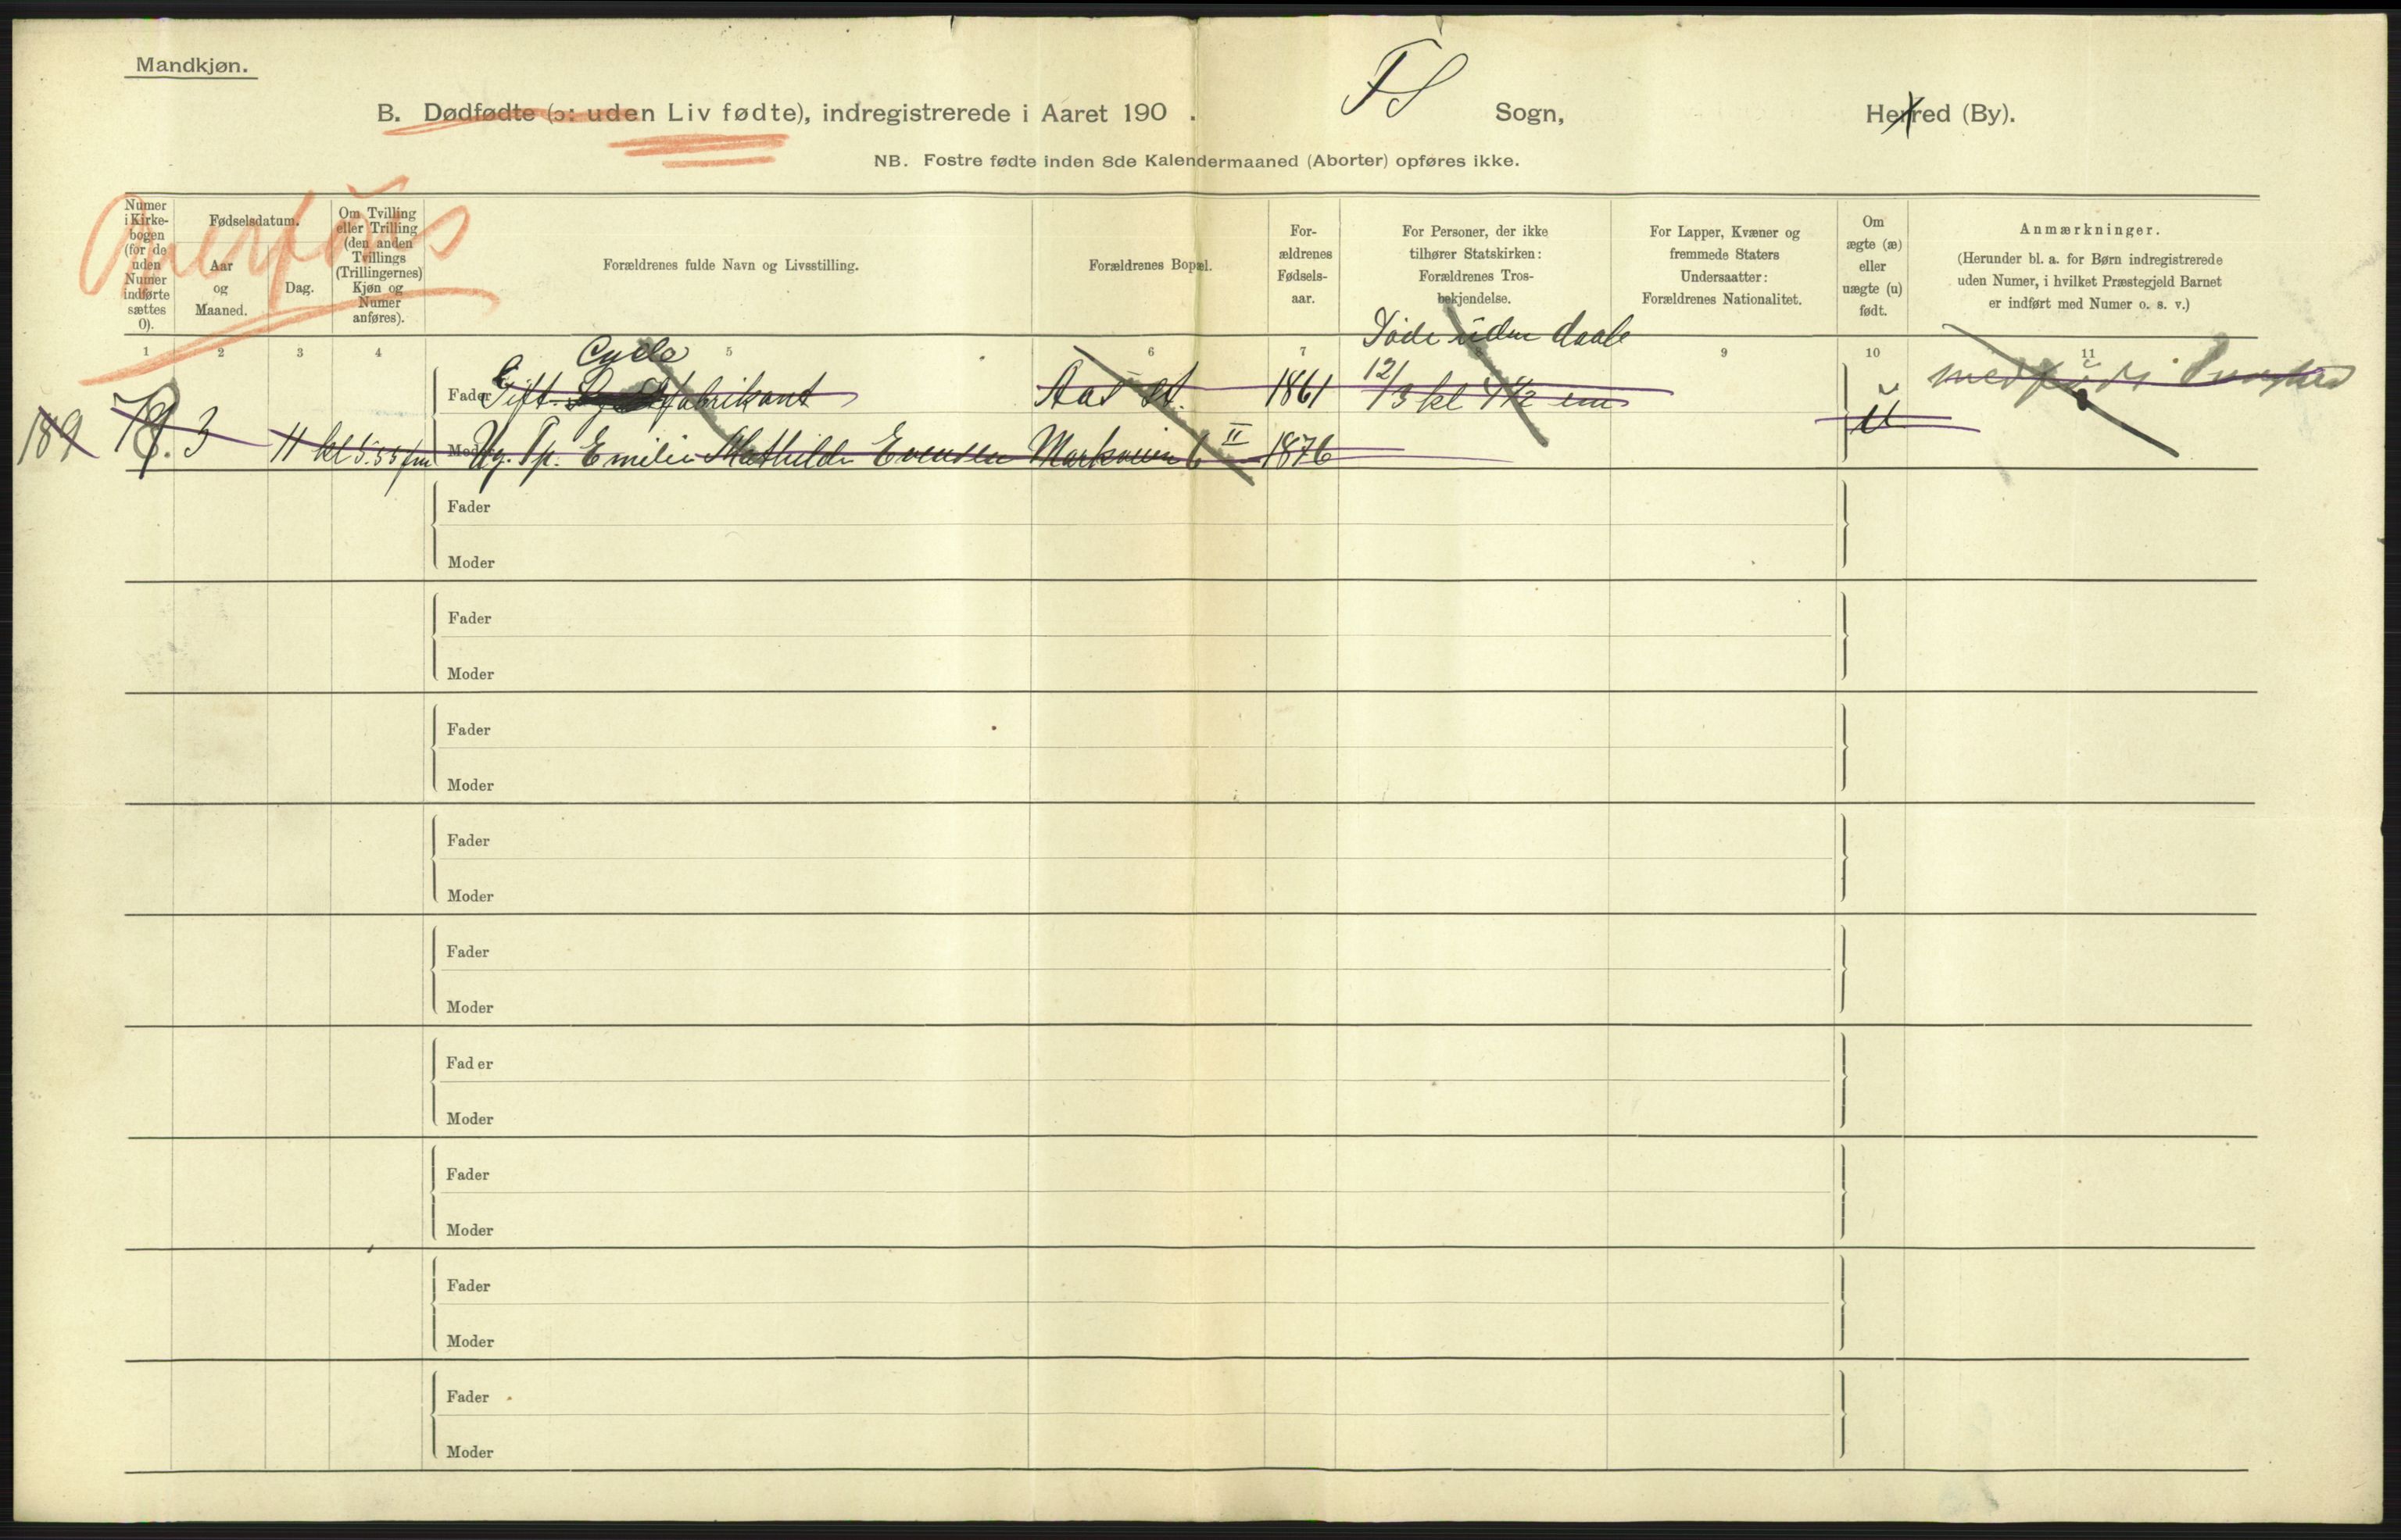 Mandkjøn.
B. Dødfødte (ɔ: uden Liv fødte), indregistrerede i Aaret 190 . FS Sogn, Herred (By).
NB. Fostre fødte inden 8de Kalendermaaned (Aborter) opføres ikke.
Overføres
Numer i Kirke-bogen (for de uden Numer indførte sættes 0).
Fødselsdatum.
Aar og Maaned.
Dag.
Om Tvilling eller Trilling (den anden Tvillings (Trillingernes) Kjøn og Numer anføres).
Forældrenes fulde Navn og Livsstilling.
Forældrenes Bopæl.
For-ældrenes Fødsels-aar.
For Personer, der ikke tilhører Statskirken: Forældrenes Tros-bekjendelse.
For Lapper, Kvæner og fremmede Staters Undersaatter: Forældrenes Nationalitet.
Om ægte (æ) eller uægte (u) født.
Anmærkninger.
(Herunder bl. a. for Børn indregistrerede uden Numer, i hvilket Præstegjeld Barnet er indført med Numer o. s. v.)
1 2 3 4 5 6 7 8 9 10 11
Døde uden daab
Cycle
Fader Gift fabrikant Aas st. 1861 12/3 kl 4 1/2 em
189 3 11 kl 5.55 fm Moder Ug. Tp. Emilie Mathilde Evensen Markveien 6 II 1876 u
Fader
Moder
Fader
Moder
Fader
Moder
Fader
Moder
Fader
Moder
Fader
Moder
Fader
Moder
Fader
Moder
Fader
Moder